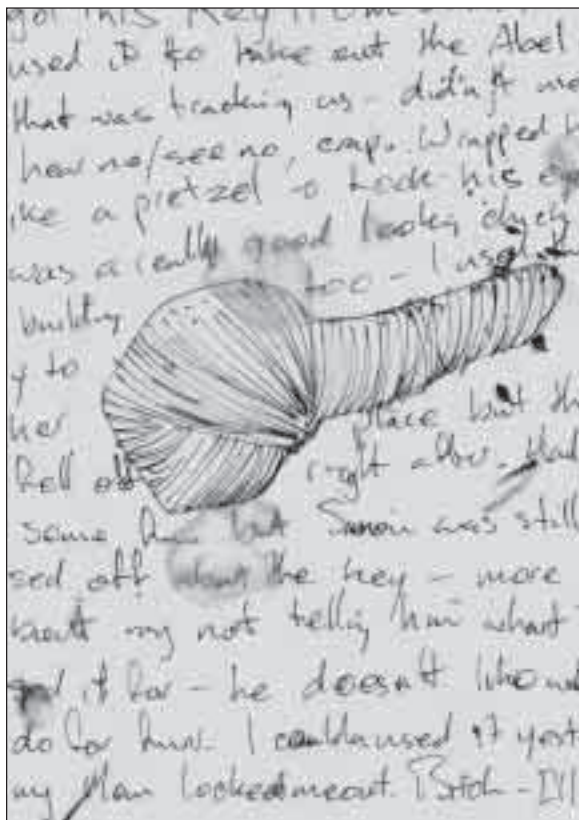 got this key from
used it to take out the Abel
that was tracking us - didn't use
hear no/see no, crap. Wrapped h
ike a pretzel to took his eye
was a really good looking chick
building too - I used
y to
her place but th
fell off right after. Had
some but Simon was still
sed off about the key - more
bout my not telling him what
ed it for - he doesn't like wh
do for him. I coulda used it yest
my Mom locked me out. Bitch - I'll